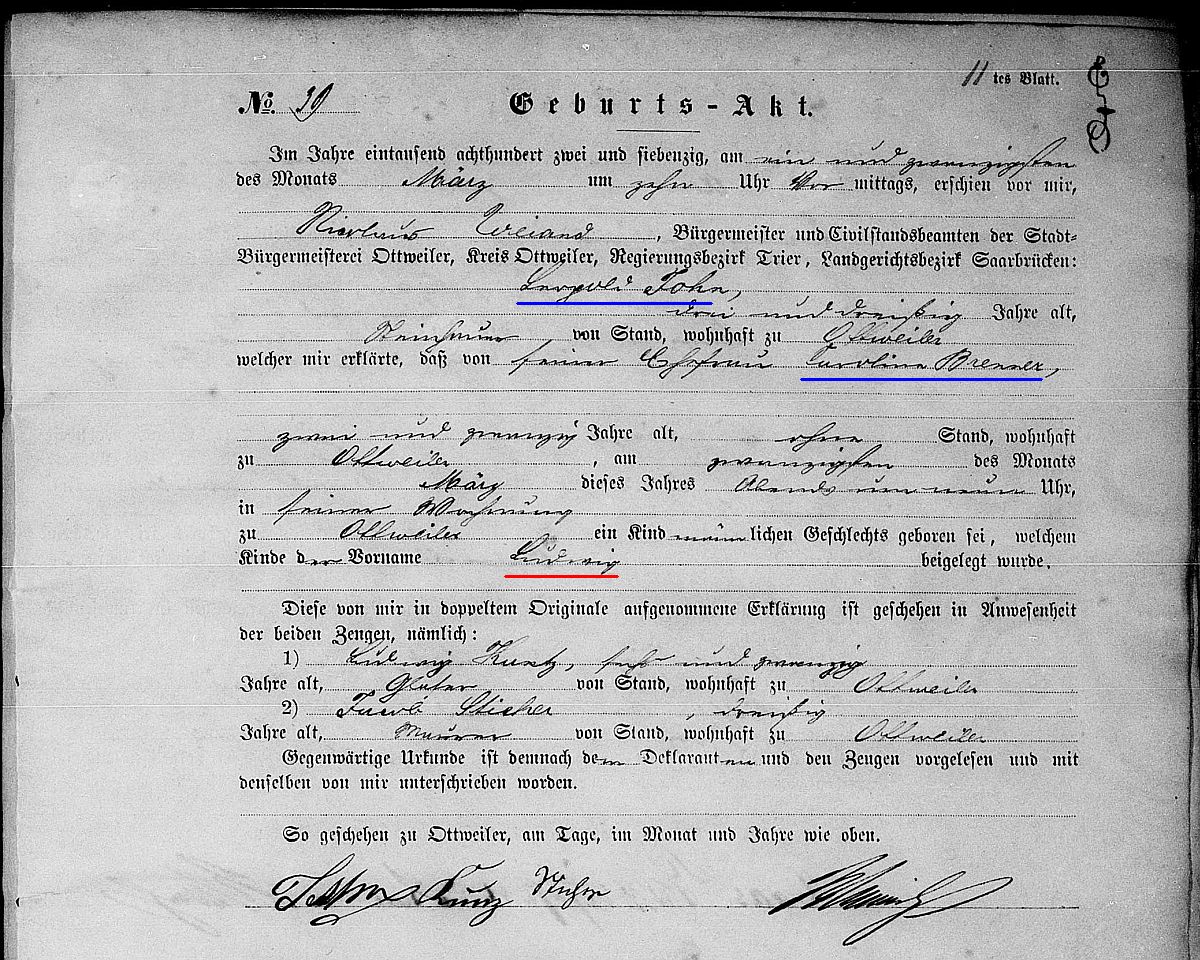 11 tes Blatt.
No. 30 Geburts-Akt.
Im Jahre eintausend achthundert zwei und siebenzig, am ein und zwanzigsten
des Monats März um zehn Uhr Vor mittags, erschien vor mir,
Nicolaus Weiand, Bürgermeister und Civilstandsbeamten der Stadt-
Bürgermeisterei Ottweiler, Kreis Ottweiler, Regierungsbezirk Trier, Landgerichtsbezirk Saarbrücken:
Leopold John,
drei und dreißig Jahre alt,
Steinhauer von Stand, wohnhaft zu Ottweiler
welcher mir erklärte, daß von seiner Ehefrau Caroline Brenner,
zwei und zwanzig Jahre alt, ohne Stand, wohnhaft
zu Ottweiler, am zwanzigsten des Monats
März dieses Jahres Abends um neun Uhr,
in seiner Wohnung
zu Ottweiler ein Kind männlichen Geschlechts geboren sei, welchem
Kinde der Vorname Ludwig beigelegt wurde.
Diese von mir in doppeltem Originale aufgenommene Erklärung ist geschehen in Anwesenheit
der beiden Zeugen, nämlich:
1) Ludwig Kuntz, sechs und zwanzig
Jahre alt, Glaser von Stand, wohnhaft zu Ottweiler
2) Jacob Sticher, dreißig
Jahre alt, Maurer von Stand, wohnhaft zu Ottweiler
Gegenwärtige Urkunde ist demnach dem Deklaranten und den Zeugen vorgelesen und mit
denselben von mir unterschrieben worden.
So geschehen zu Ottweiler, am Tage, im Monat und Jahre wie oben.
Kunz Sticher